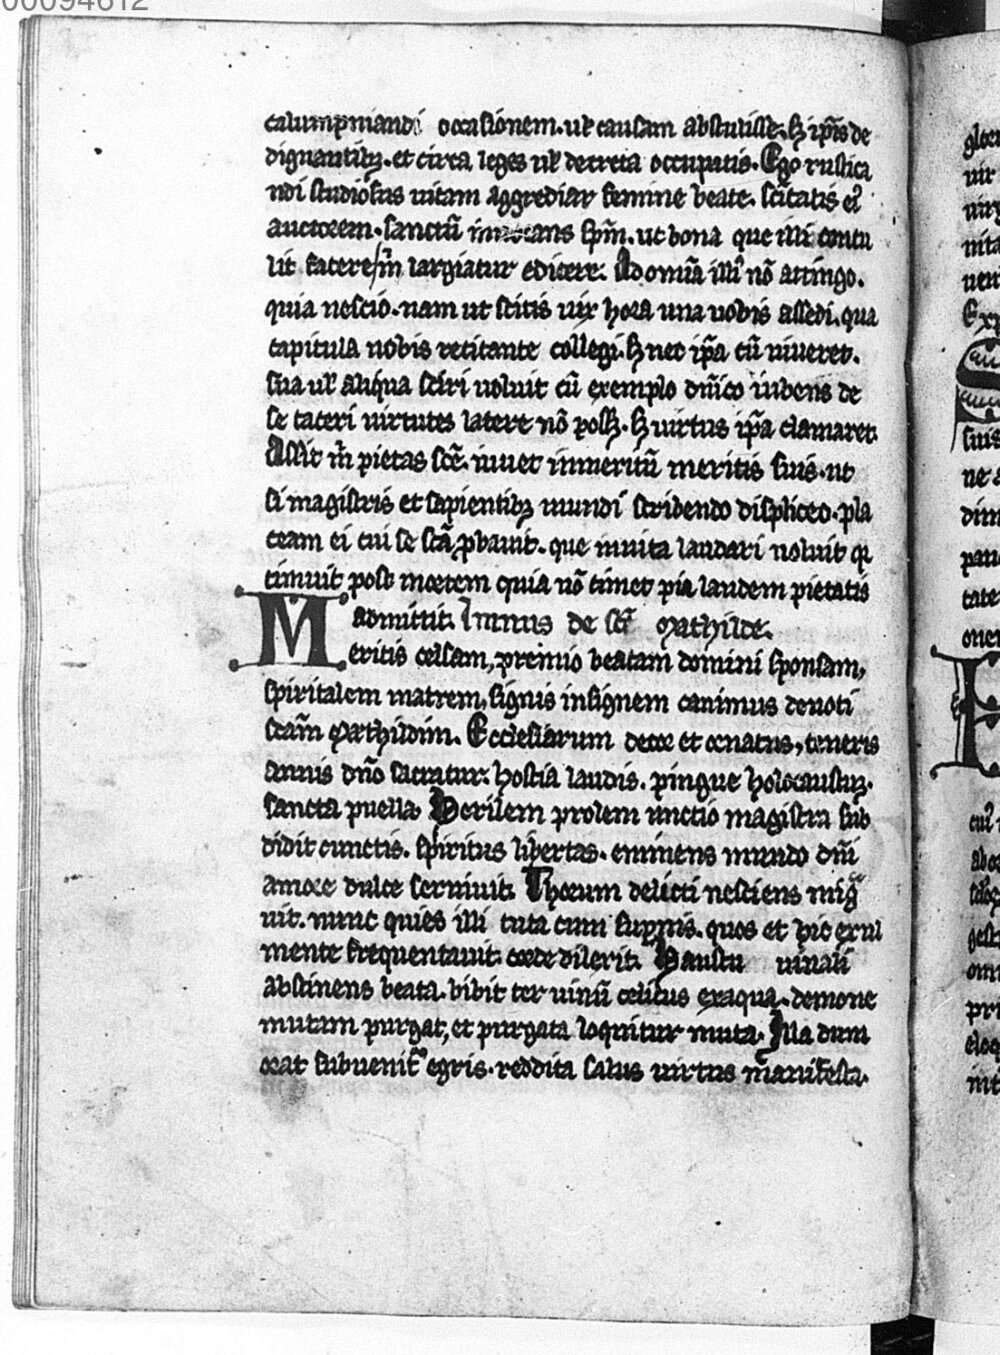 00094612
calumpniandi occasionem. ul' causam abstulisse. sꝫ ip̄is de
dignantibꝫ. et circa leges ul' decreta occupatis. Ego rustica
ndi studiosus uitam aggrediar femine beate. sc̄itatis ei'
auctorem. sanctū inuocans sp̄m. ut bona que illi contu
lit facere / m̄ largiatur edicere. Ad om̄ia illi' nō attingo.
quia nescio. nam ut scitis uix hora una uobis assedi. qua
capitula nobis recitante collegi. sꝫ nec ip̄a cū uiueret.
sua ul' aliqua sciri uoluit cū exemplo dn̄ico iubens de
se taceri uirtutes latere nō possꝫ. sꝫ uirtus ip̄a clamaret.
Assit m̄ pietas sc̄e. iuuet inmeritū meritis suis. ut
si magistris et sapientibꝫ mundi scribendo displiceo. pla
ceam ei cui se sc̄a ꝓbauit. que inuita laudari noluit qꝛ
timuit post mortem quia nō timet pia laudem pietatis
admittit. Imnus de sc̄a Mathilde.
Meritis celsam, premio beatam domini sponsam,
spiritalem matrem, signis insignem canimus deuoti
sc̄am Mathildim. Ecclesiarum decor et ornatus, teneris
annis dn̄o sacratur. hostia laudis. pingue holocaustꝫ.
sancta puella. Herilem prolem unctio magistra sub
didit cunctis. spiritus libertas. eminens mundo dn̄i
amore dulce seruiuit. Thorum delicti nesciens mig̃
uit. nunc quies illi tuta cum supernis. quos et hic exul
mente frequentauit. corde dilexit. Haustu uinali
abstinens beata. bibit ter uinū celitus ex aqua. demone
mutam purgat, et purgata loquitur muta. Illa dum
orat subuenit egris. reddita salus uirtus manifesta.